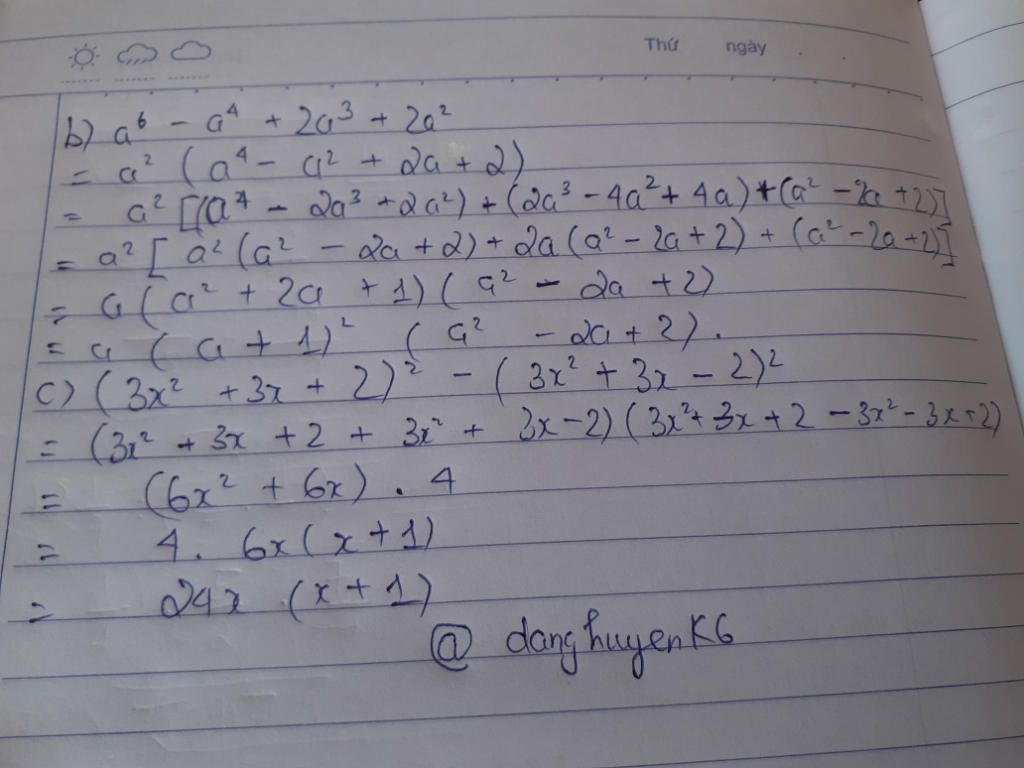 Thứ ngày
b) a⁶ - a⁴ + 2a³ + 2a²
= a² (a⁴ - a² + 2a + 2)
= a² [(a⁴ - 2a³ + 2a²) + (2a³ - 4a² + 4a) + (a² - 2a + 2)]
= a² [ a² (a² - 2a + 2) + 2a (a² - 2a + 2) + (a² - 2a + 2)]
= a (a² + 2a + 1) (a² - 2a + 2)
= a (a + 1)² (a² - 2a + 2).
c) (3x² + 3x + 2)² - (3x² + 3x - 2)²
= (3x² + 3x + 2 + 3x² + 3x - 2) (3x² + 3x + 2 - 3x² - 3x + 2)
= (6x² + 6x) . 4
= 4. 6x (x + 1)
= 24x (x + 1)
@ danghuyenK6